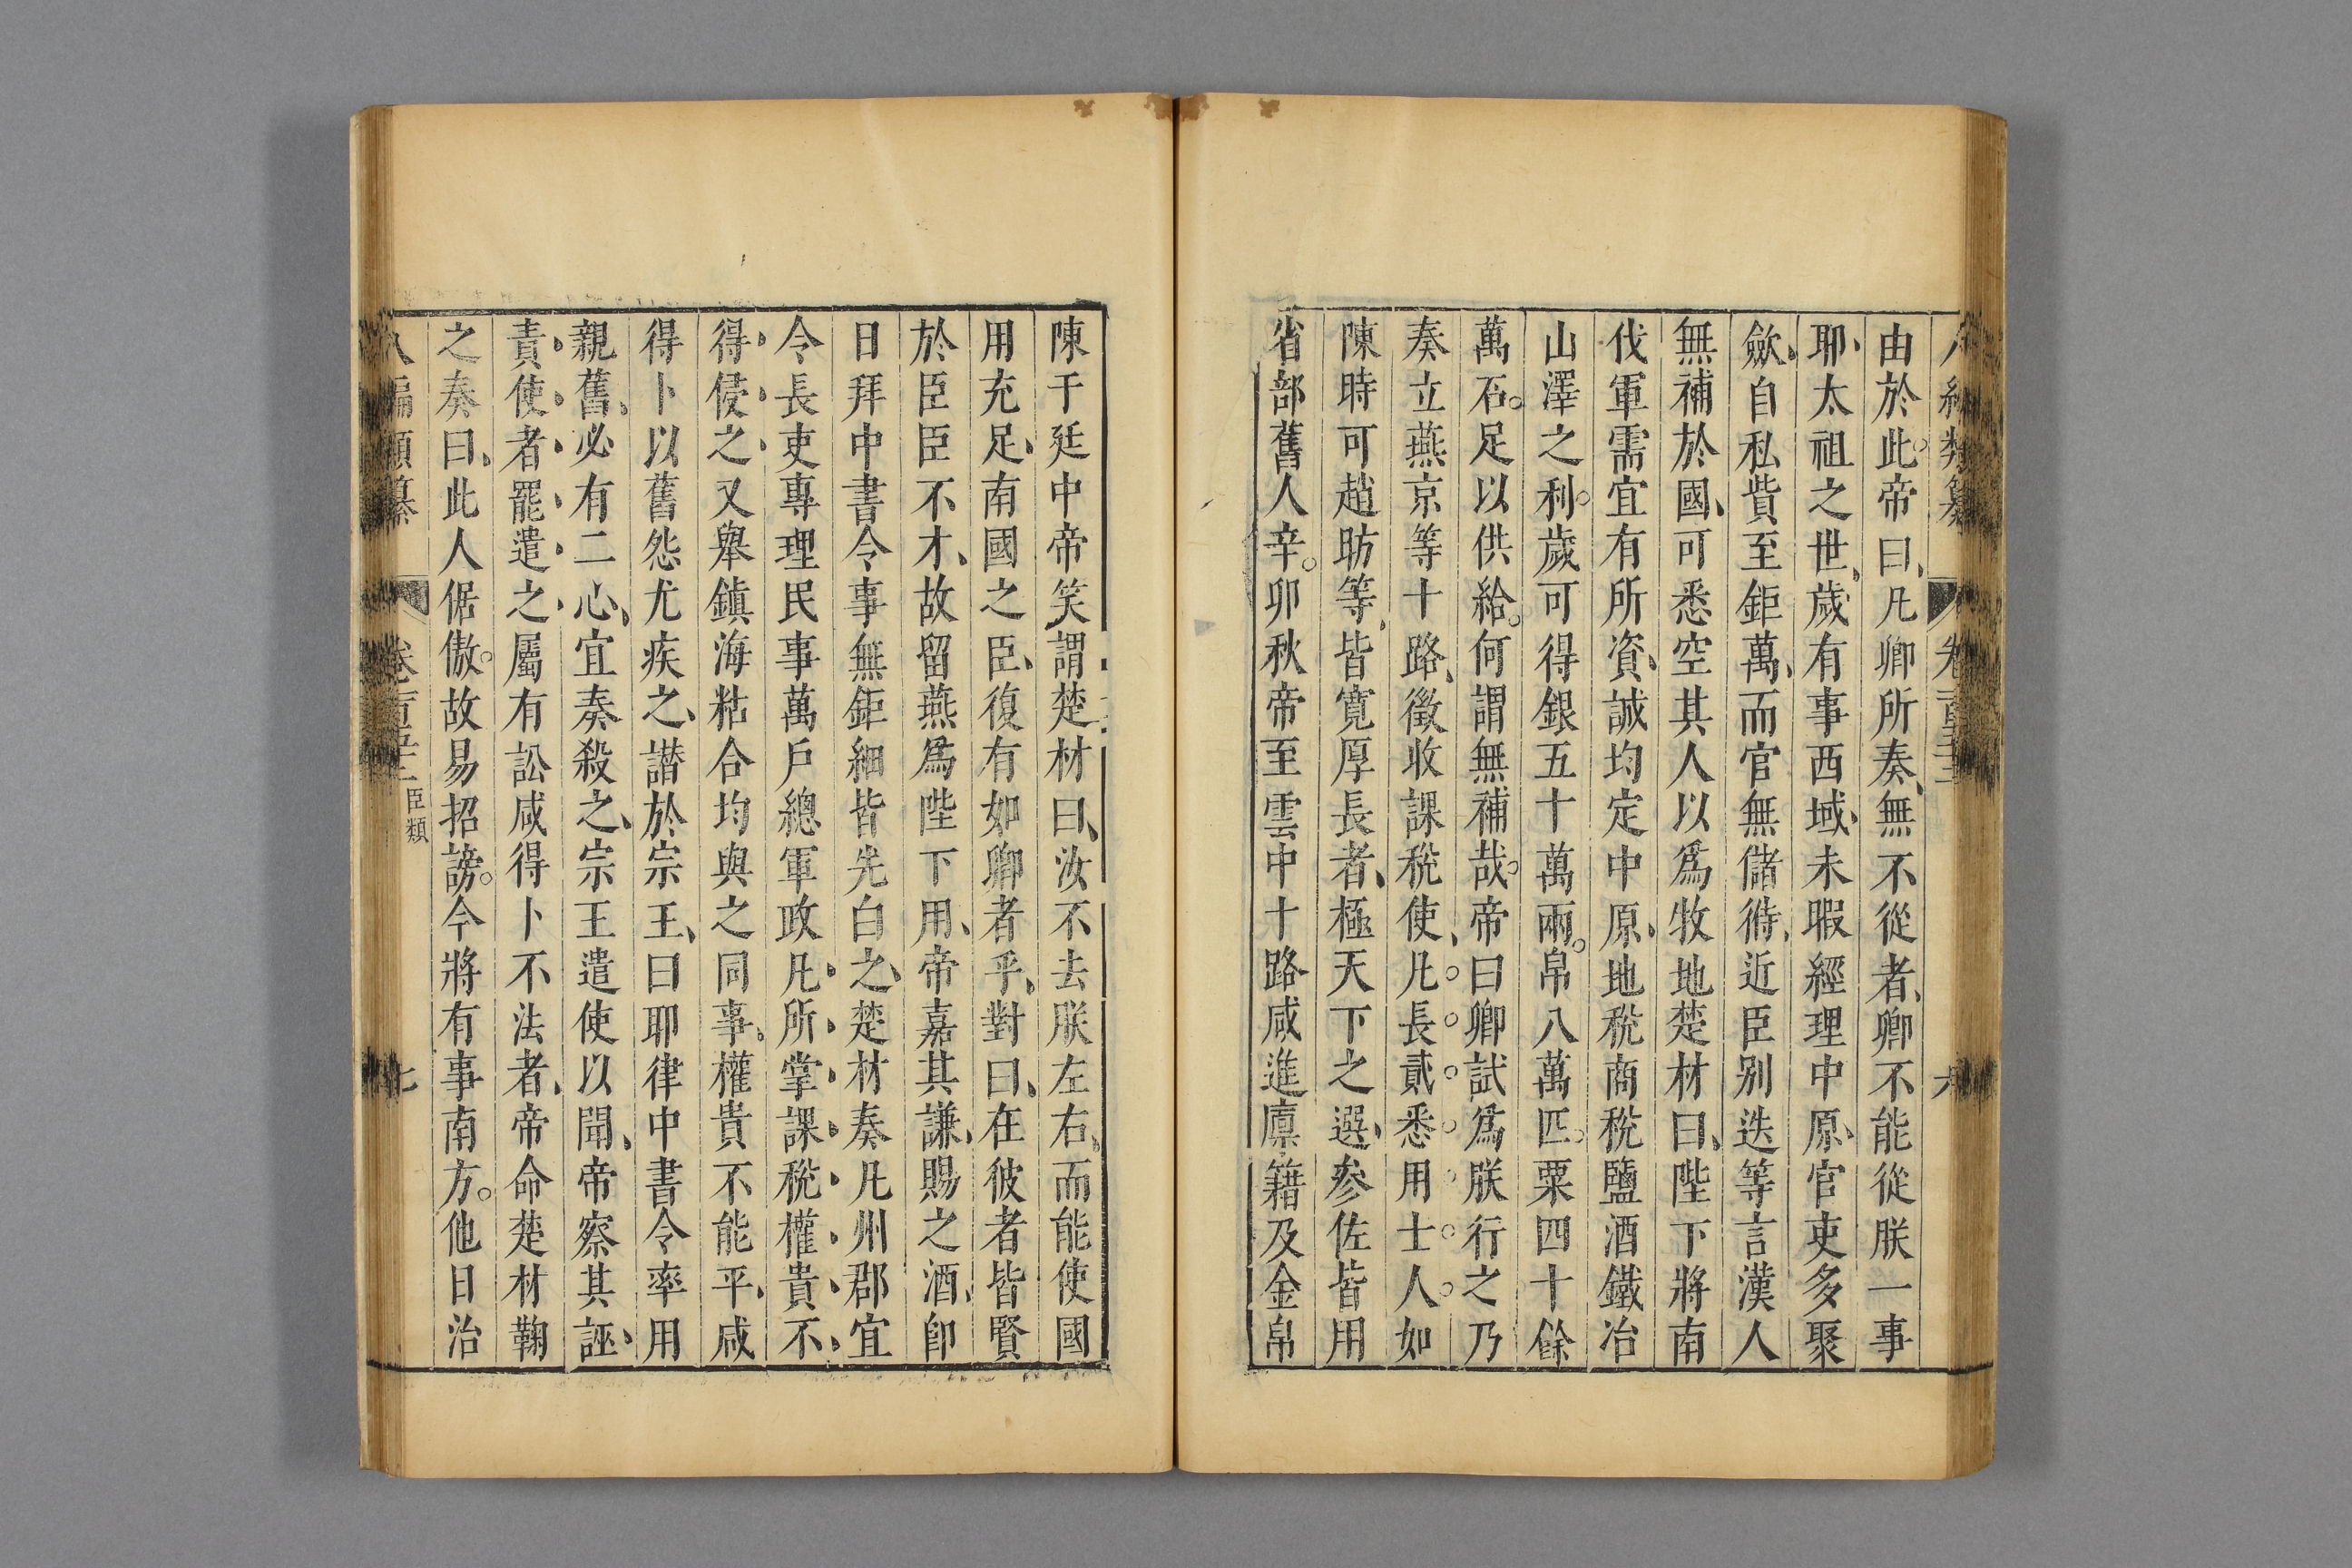 八編類纂 卷一百五十二 六
由於此帝曰凡卿所奏無不從者卿不能從朕一事
耶太祖之世歲有事西域未暇經理中原官吏多聚
歛自私貲至鉅萬而官無儲偫近臣别迭等言漢人
無補於國可悉空其人以爲牧地楚材曰陛下將南
伐軍需宜有所資誠均定中原地稅商稅鹽酒鐵冶
山澤之利歲可得銀五十萬兩帛八萬匹粟四十餘
萬石足以供給何謂無補哉帝曰卿試爲朕行之乃
奏立燕京等十路徵收課稅使凡長貳悉用士人如
陳時可趙昉等皆寛厚長者極天下之選參佐皆用
省部舊人辛卯秋帝至雲中十路咸進廩籍及金帛
陳于廷中帝笑謂楚材曰汝不去朕左右而能使國
用充足南國之臣復有如卿者乎對曰在彼者皆賢
於臣臣不才故留燕爲陛下用帝嘉其謙賜之酒卽
日拜中書令事無鉅細皆先白之楚材奏凡州郡宜
令長吏專理民事萬戶總軍政凡所掌課稅權貴不
得侵之又舉鎮海粘合均與之同事權貴不能平咸
得卜以舊怨尤疾之譖於宗王曰耶律中書令率用
親舊必有二心宜奏殺之宗王遣使以聞帝察其誣
責使者罷遣之屬有訟咸得卜不法者帝命楚材鞠
之奏曰此人倨傲故易招謗今將有事南方他日治
八編類纂 卷一百五十二 臣類 七